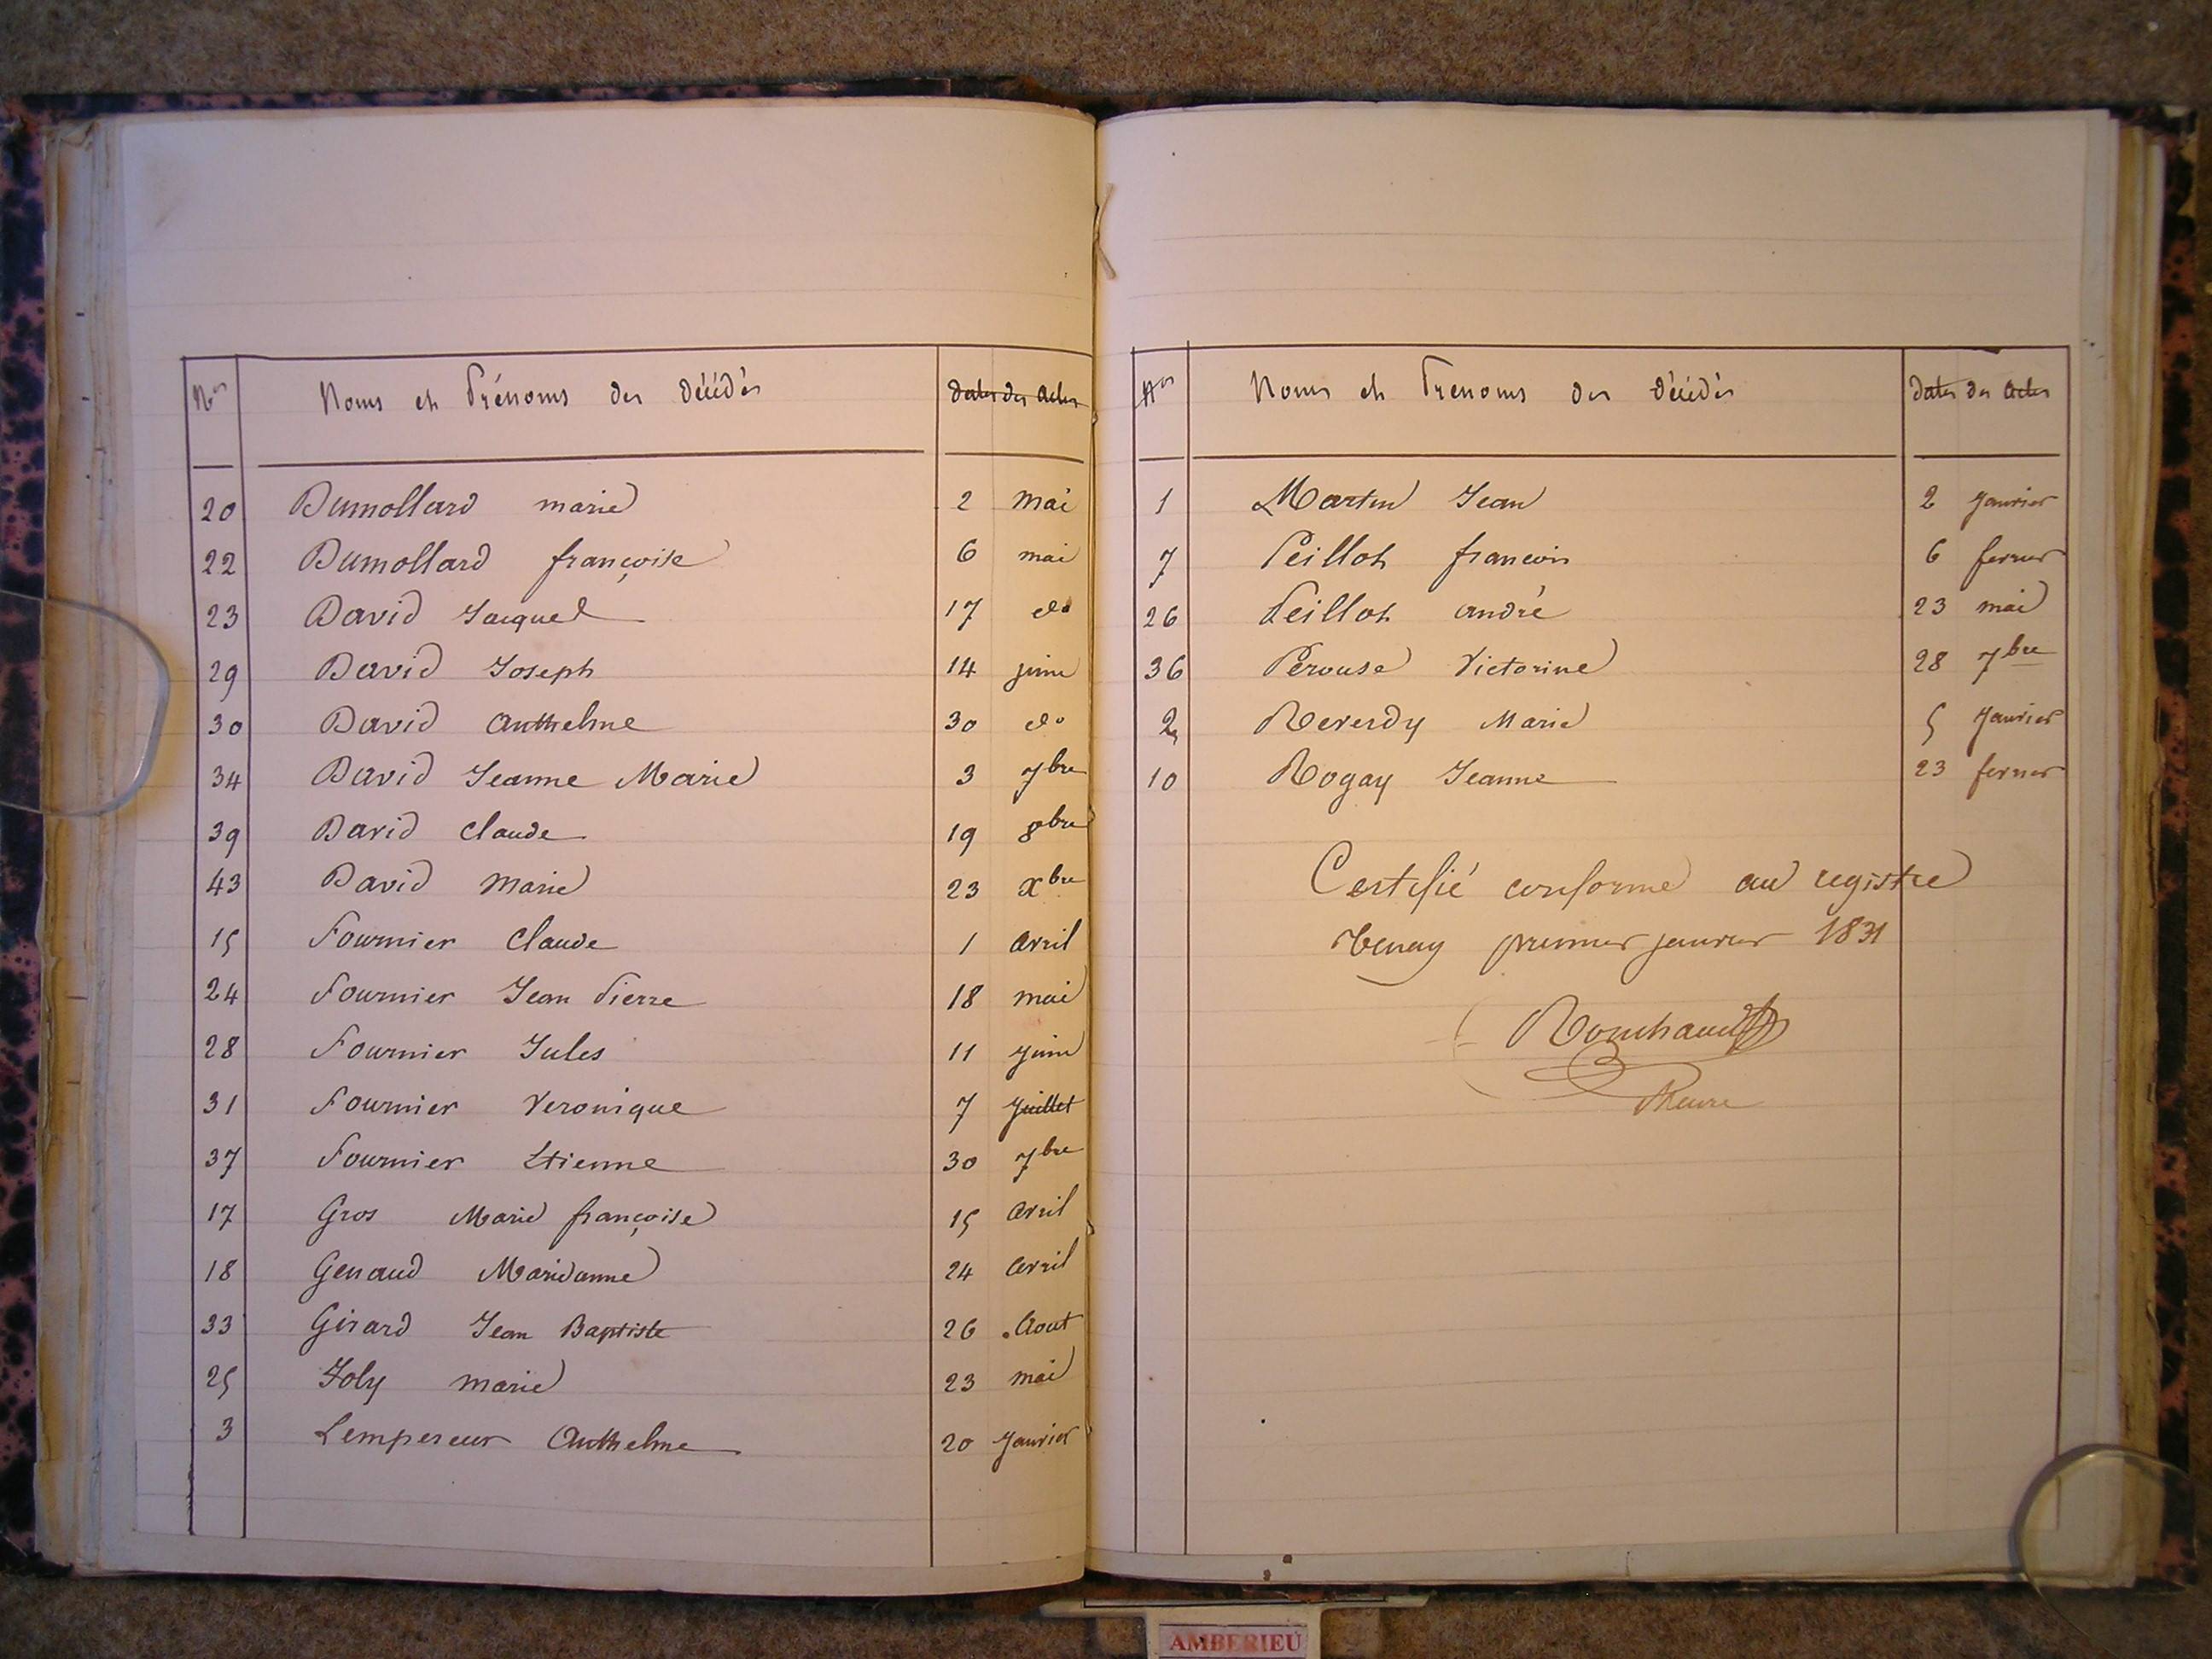 Nos Noms et Prénoms des décédés dates des actes
20 Dumollard marie 2 mai
22 Dumollard françoise 6 mai
23 David Jacques 17 do
29 David Joseph 14 juin
30 David Anthelme 30 do
34 David Jeanne Marie 3 7bre
39 David Claude 19 8bre
43 David Marie 23 Xbre
15 Fournier Claude 1 avril
24 Fournier Jean Pierre 18 mai
28 Fournier Jules 11 juin
31 Fournier Veronique 7 Juillet
37 Fournier Etienne 30 7bre
17 Gros Marie françoise 15 avril
18 Genaud Marieanne 24 avril
33 Girard Jean Baptiste 26 Aout
25 Joly marie 23 mai
3 Lempereur Anthelme 20 Janvier
Nos Noms et Prenoms des décédés dates des actes
1 Martin Jean 2 Janvier
7 Peillot francois 6 fevrier
26 Peillot andré 23 mai
36 Perouse Victorine 28 7bre
2 Reverdy Marie 5 Janvier
10 Rogay Jeanne 23 fevrier
Certifié conforme au registre
Tenay premier janvier 1831
AMBERIEU